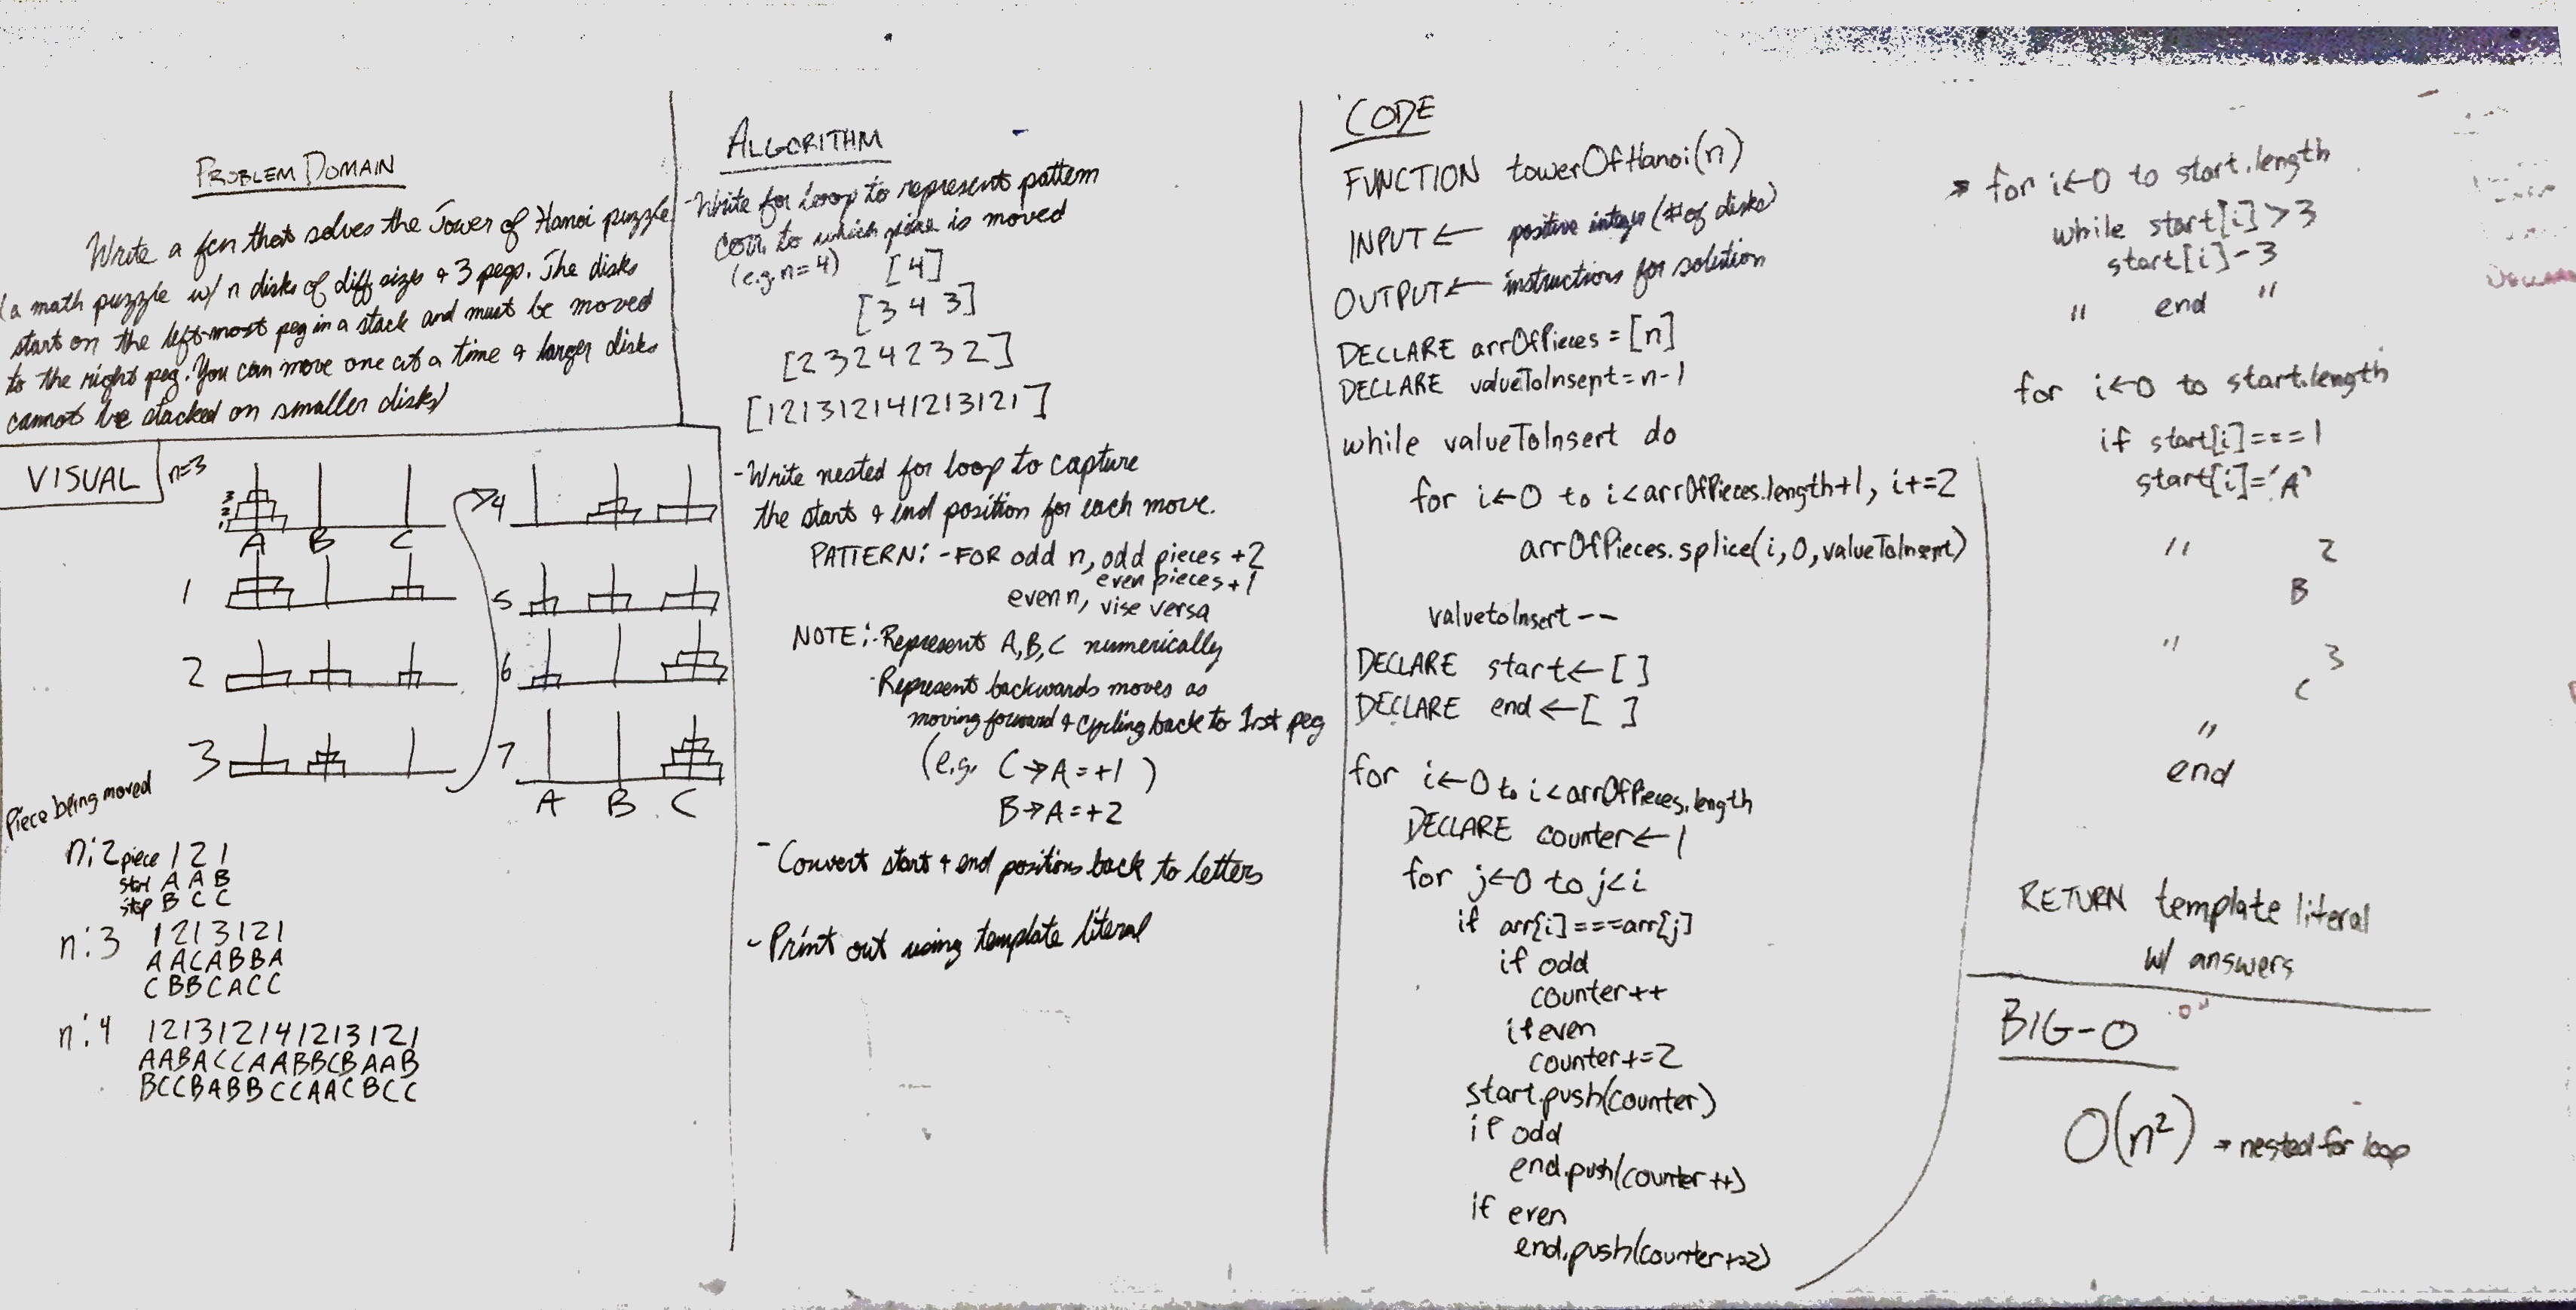 PROBLEM DOMAIN
Write a fcn that solves the Tower of Hanoi puzzle
(a math puzzle w/ n disks of diff sizes & 3 pegs. The disks
start on the left-most peg in a stack and must be moved
to the right peg. You can move one at a time & larger disks
cannot be stacked on smaller disks)
VISUAL
n=3
3
2
1
A B C
1
2
3
4
5
6
7
A B C
Piece being moved
n:2 piece 1 2 1
start A A B
stop B C C
n:3 1213121
AACABBA
CBBCACC
n:4 121312141213121
AABACCAABBCBAAB
BCCBABBCCAACBCC
ALGORITHM
- Write for loop to represent pattern
to which piece is moved
(e.g. n=4) [4]
[3 4 3]
[2 3 2 4 2 3 2]
[121312141213121]
- Write nested for loop to capture
the start & end position for each move.
PATTERN: - FOR odd n, odd pieces +2
even pieces +1
even n, vise versa
NOTE: - Represent A,B,C numerically
- Represent backwards moves as
moving forward & cycling back to 1rst peg
(e.g. C→A=+1)
B→A=+2
- Convert start & end positions back to letters
- Print out using template literal
CODE
FUNCTION towerOfHanoi(n)
INPUT ← positive integer (# of disks)
OUTPUT ← instructions for solution
DECLARE arrOfPieces = [n]
DECLARE valueToInsept = n-1
while valueToInsert do
for i←0 to i<arrOfPieces.length+1, i+=2
arrOfPieces.splice(i,0,valueToInsert)
valuetoInsert--
DECLARE start ← [ ]
DECLARE end ← [ ]
for i←0 to i<arrOfPieces.length
DECLARE counter ← 1
for j←0 to j<i
if arr[i]===arr[j]
if odd
counter++
if even
counter+=2
start.push(counter)
if odd
end.push(counter++)
if even
end.push(counter+=2)
→ for i←0 to start.length
while start[i]>3
start[i]-3
" end "
for i←0 to start.length
if start[i]===1
start[i]='A'
" 2
B
" 3
C
"
end
RETURN template literal
w/ answers
BIG-O
O(n²) → nested for loop